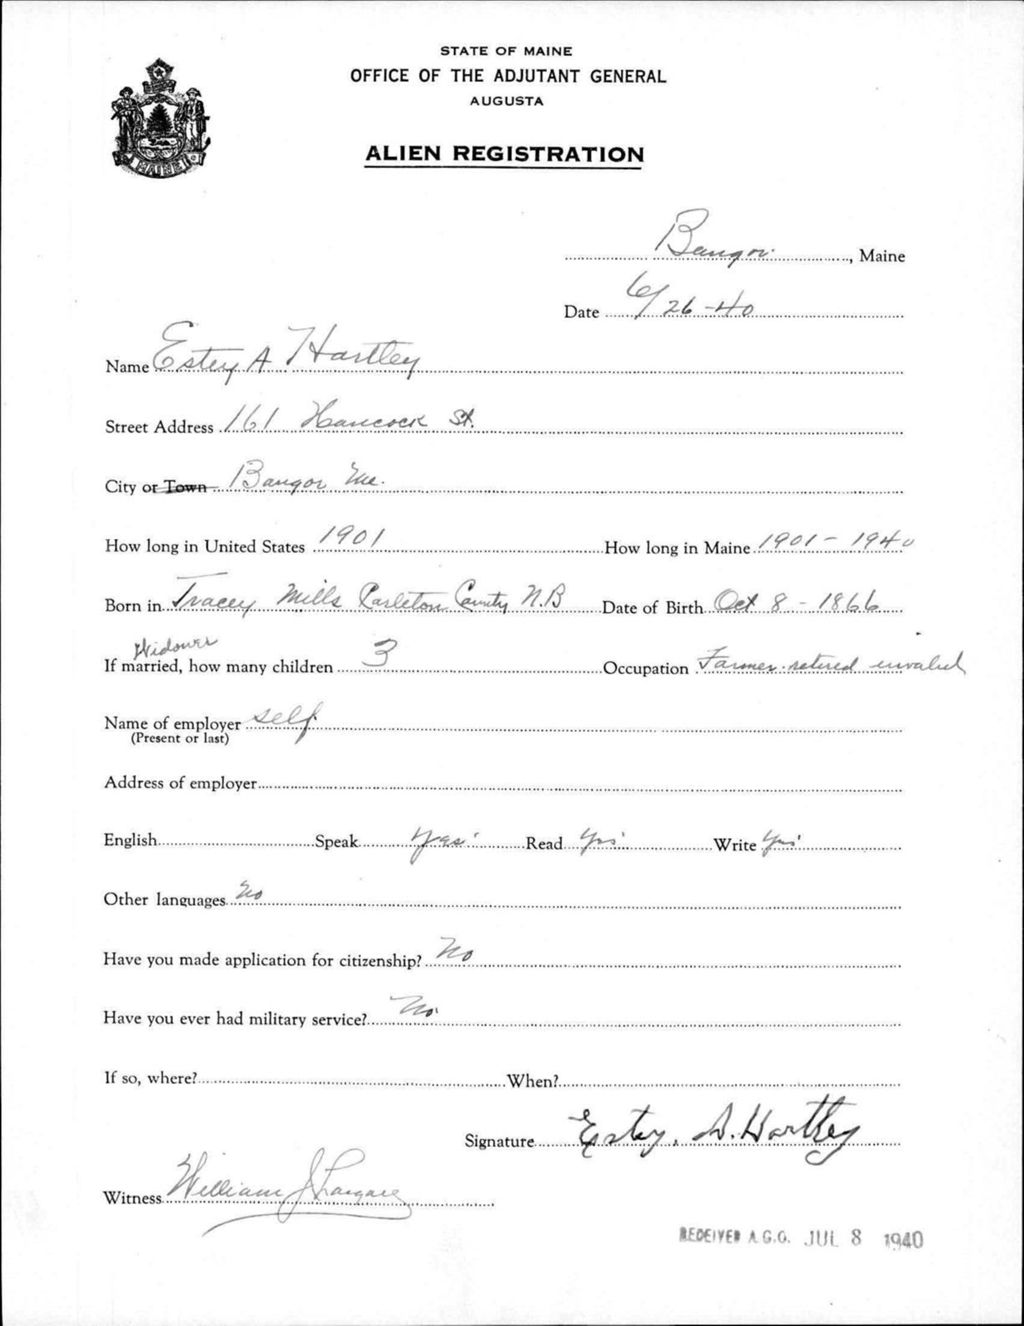 STATE OF MAINE
OFFICE OF THE ADJUTANT GENERAL
AUGUSTA
ALIEN REGISTRATION
MAINE
Bangor, Maine
Date 6/26-40
Name Estey A Hartley
Street Address 161 Hancock St.
City or Town Bangor Me.
How long in United States 1901 How long in Maine 1901 - 1940
Born in Tracey Mills Carleton County N.B Date of Birth Oct 8 - 1866
Widower
If married, how many children 3 Occupation Farmer retired invalid
Name of employer self
(Present or last)
Address of employer
English Speak Yes Read Yes Write Yes
Other languages No
Have you made application for citizenship? No
Have you ever had military service? No
If so, where? When?
Signature Estey. A. Hartley
Witness William J
RECEIVED A.G.O. JUL 8 1940